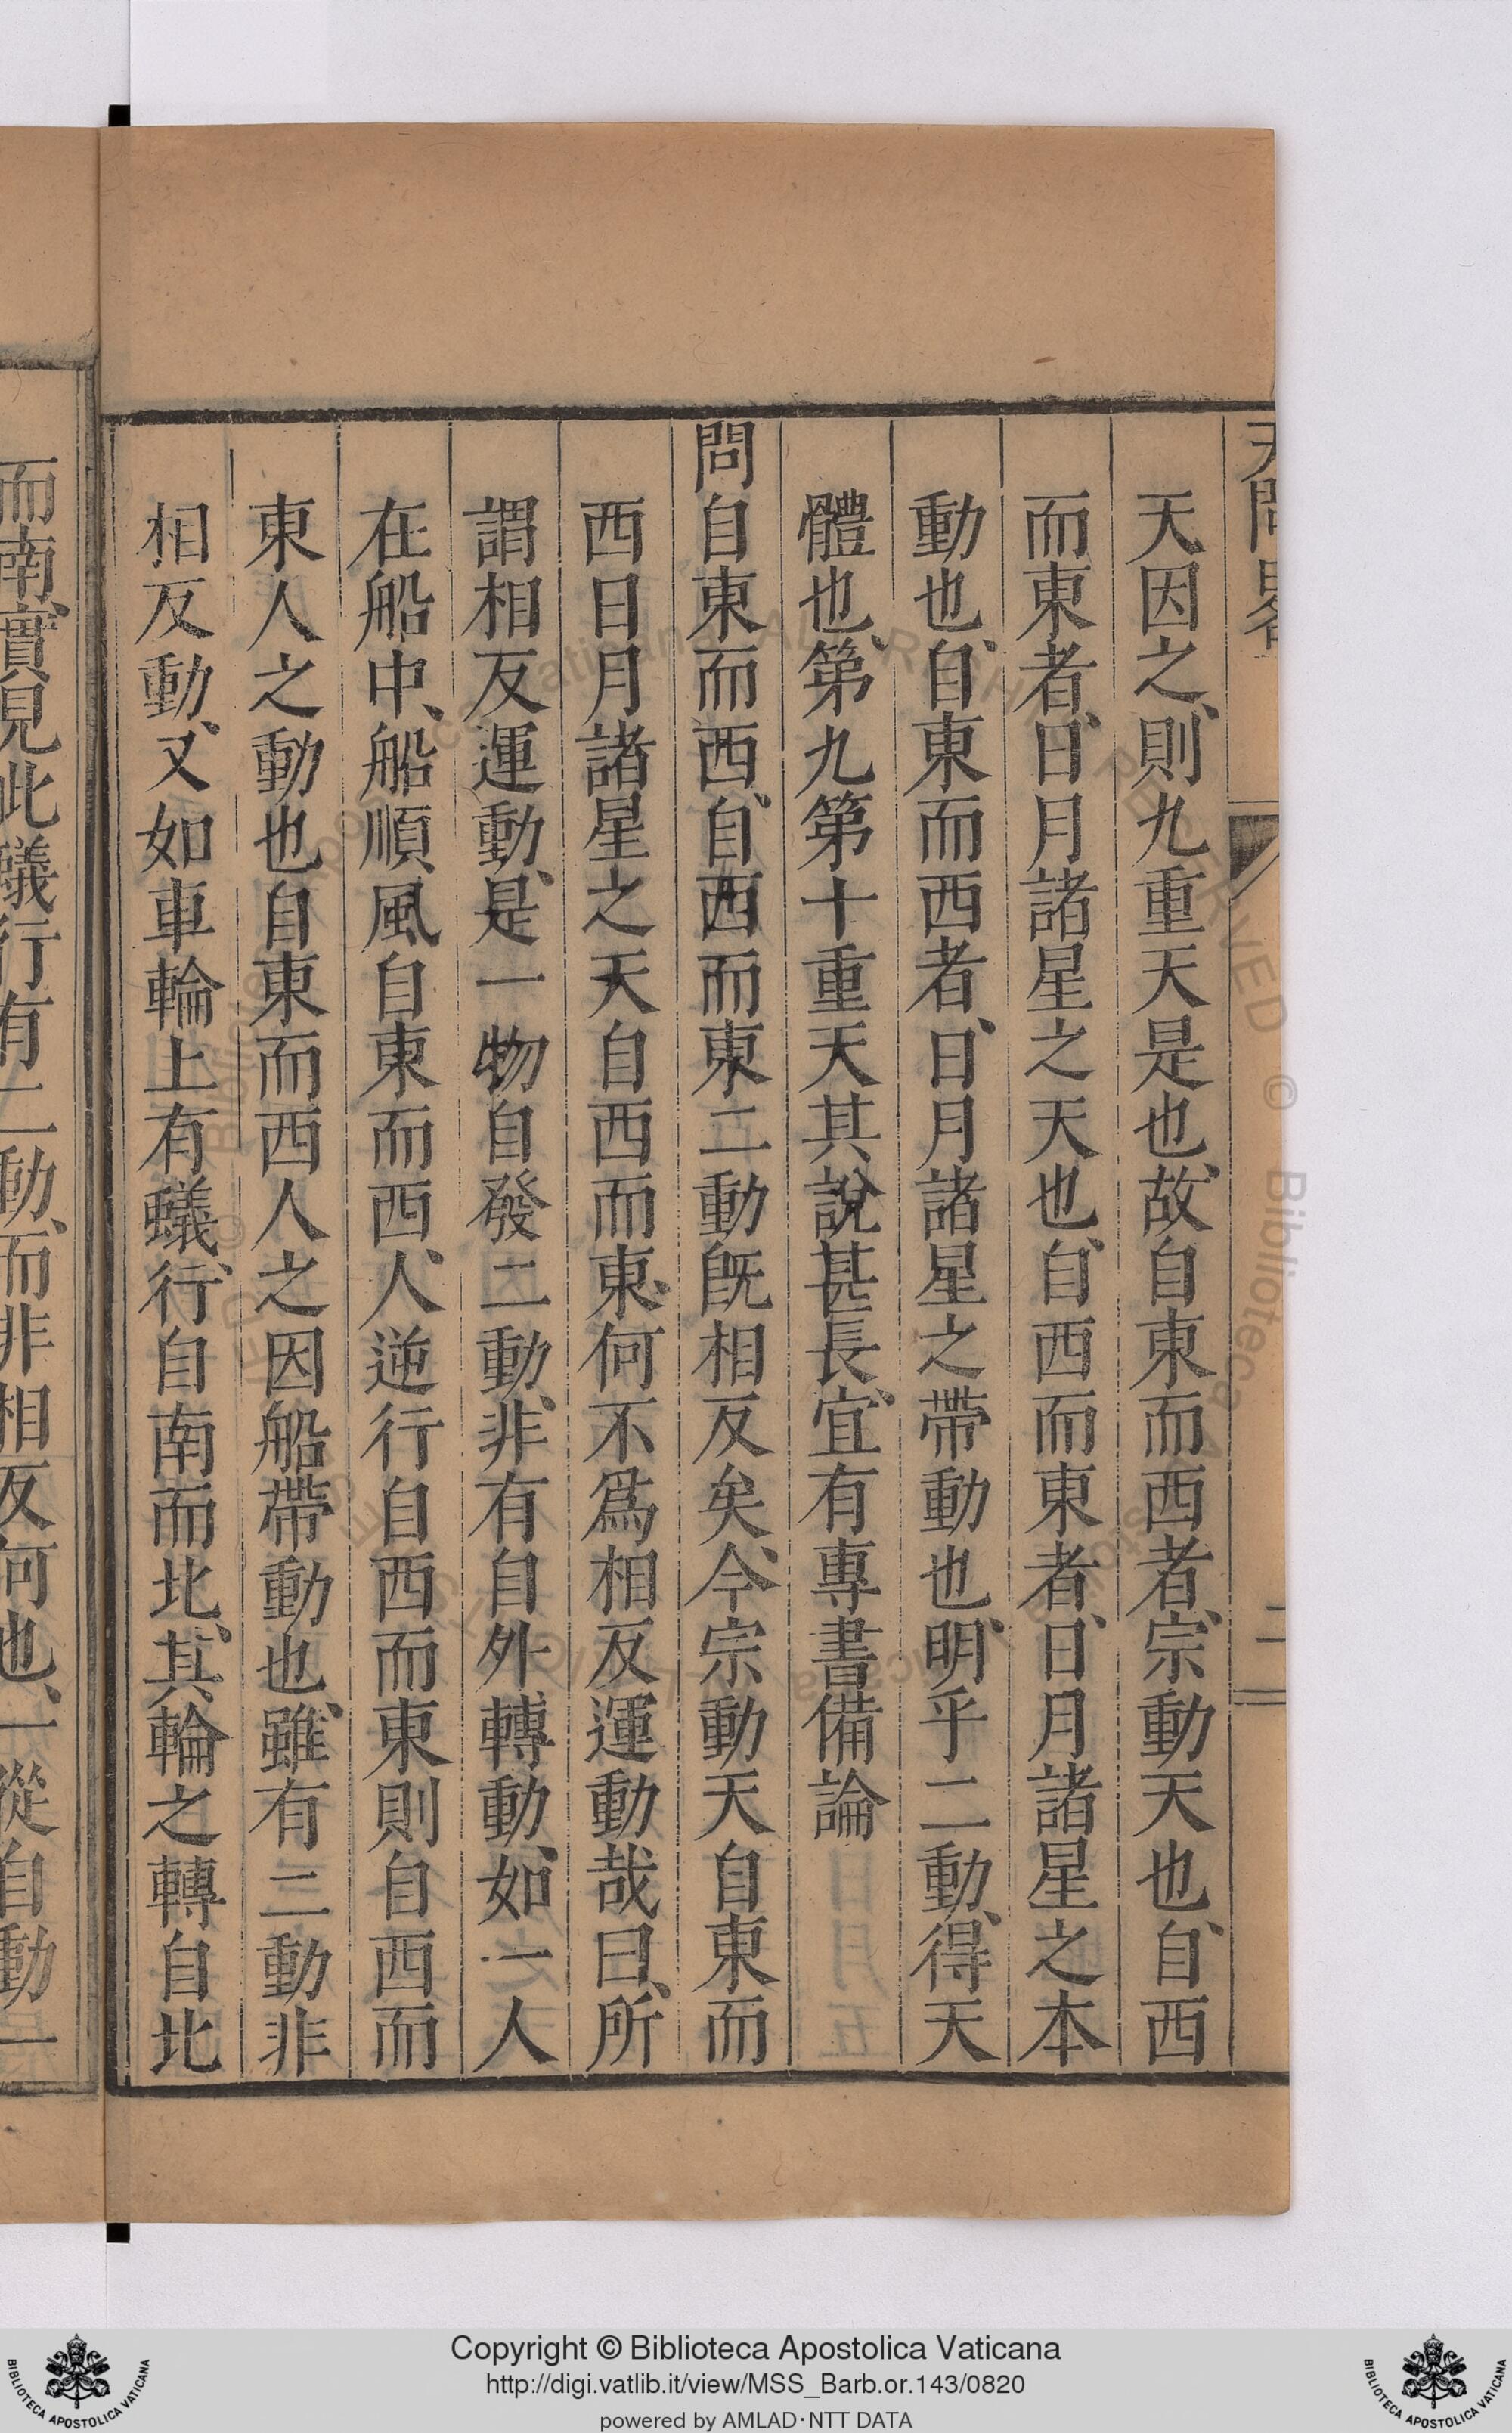 天問畧
二
天因之、則九重天是也、故自東而西者、宗動天也、自西
而東者、日月諸星之天也、自西而東者、日月諸星之本
動也、自東而西者、日月諸星之帶動也、明乎二動、得天
體也、第九第十重天其說甚長、宜有專書備論
問自東而西、自西而東二動旣相反矣、今宗動天自東而
西日月諸星之天自西而東、何不爲相反運動哉曰、所
謂相反運動、是一物自發二動、非有自外轉動、如一人
在船中、船順風自東而西、人逆行自西而東則自西而
東人之動也自東而西人之因船帶動也、雖有二動非
相反動、又如車輪上有蟻、行自南而北、其輪之轉自北
而南、實見此蟻行有二動、而非相反何也、一從自動一
Copyright © Biblioteca Apostolica Vaticana
http://digi.vatlib.it/view/MSS_Barb.or.143/0820
powered by AMLAD·NTT DATA
BIBLIOTECA APOSTOLICA VATICANA
BIBLIOTECA APOSTOLICA VATICANA